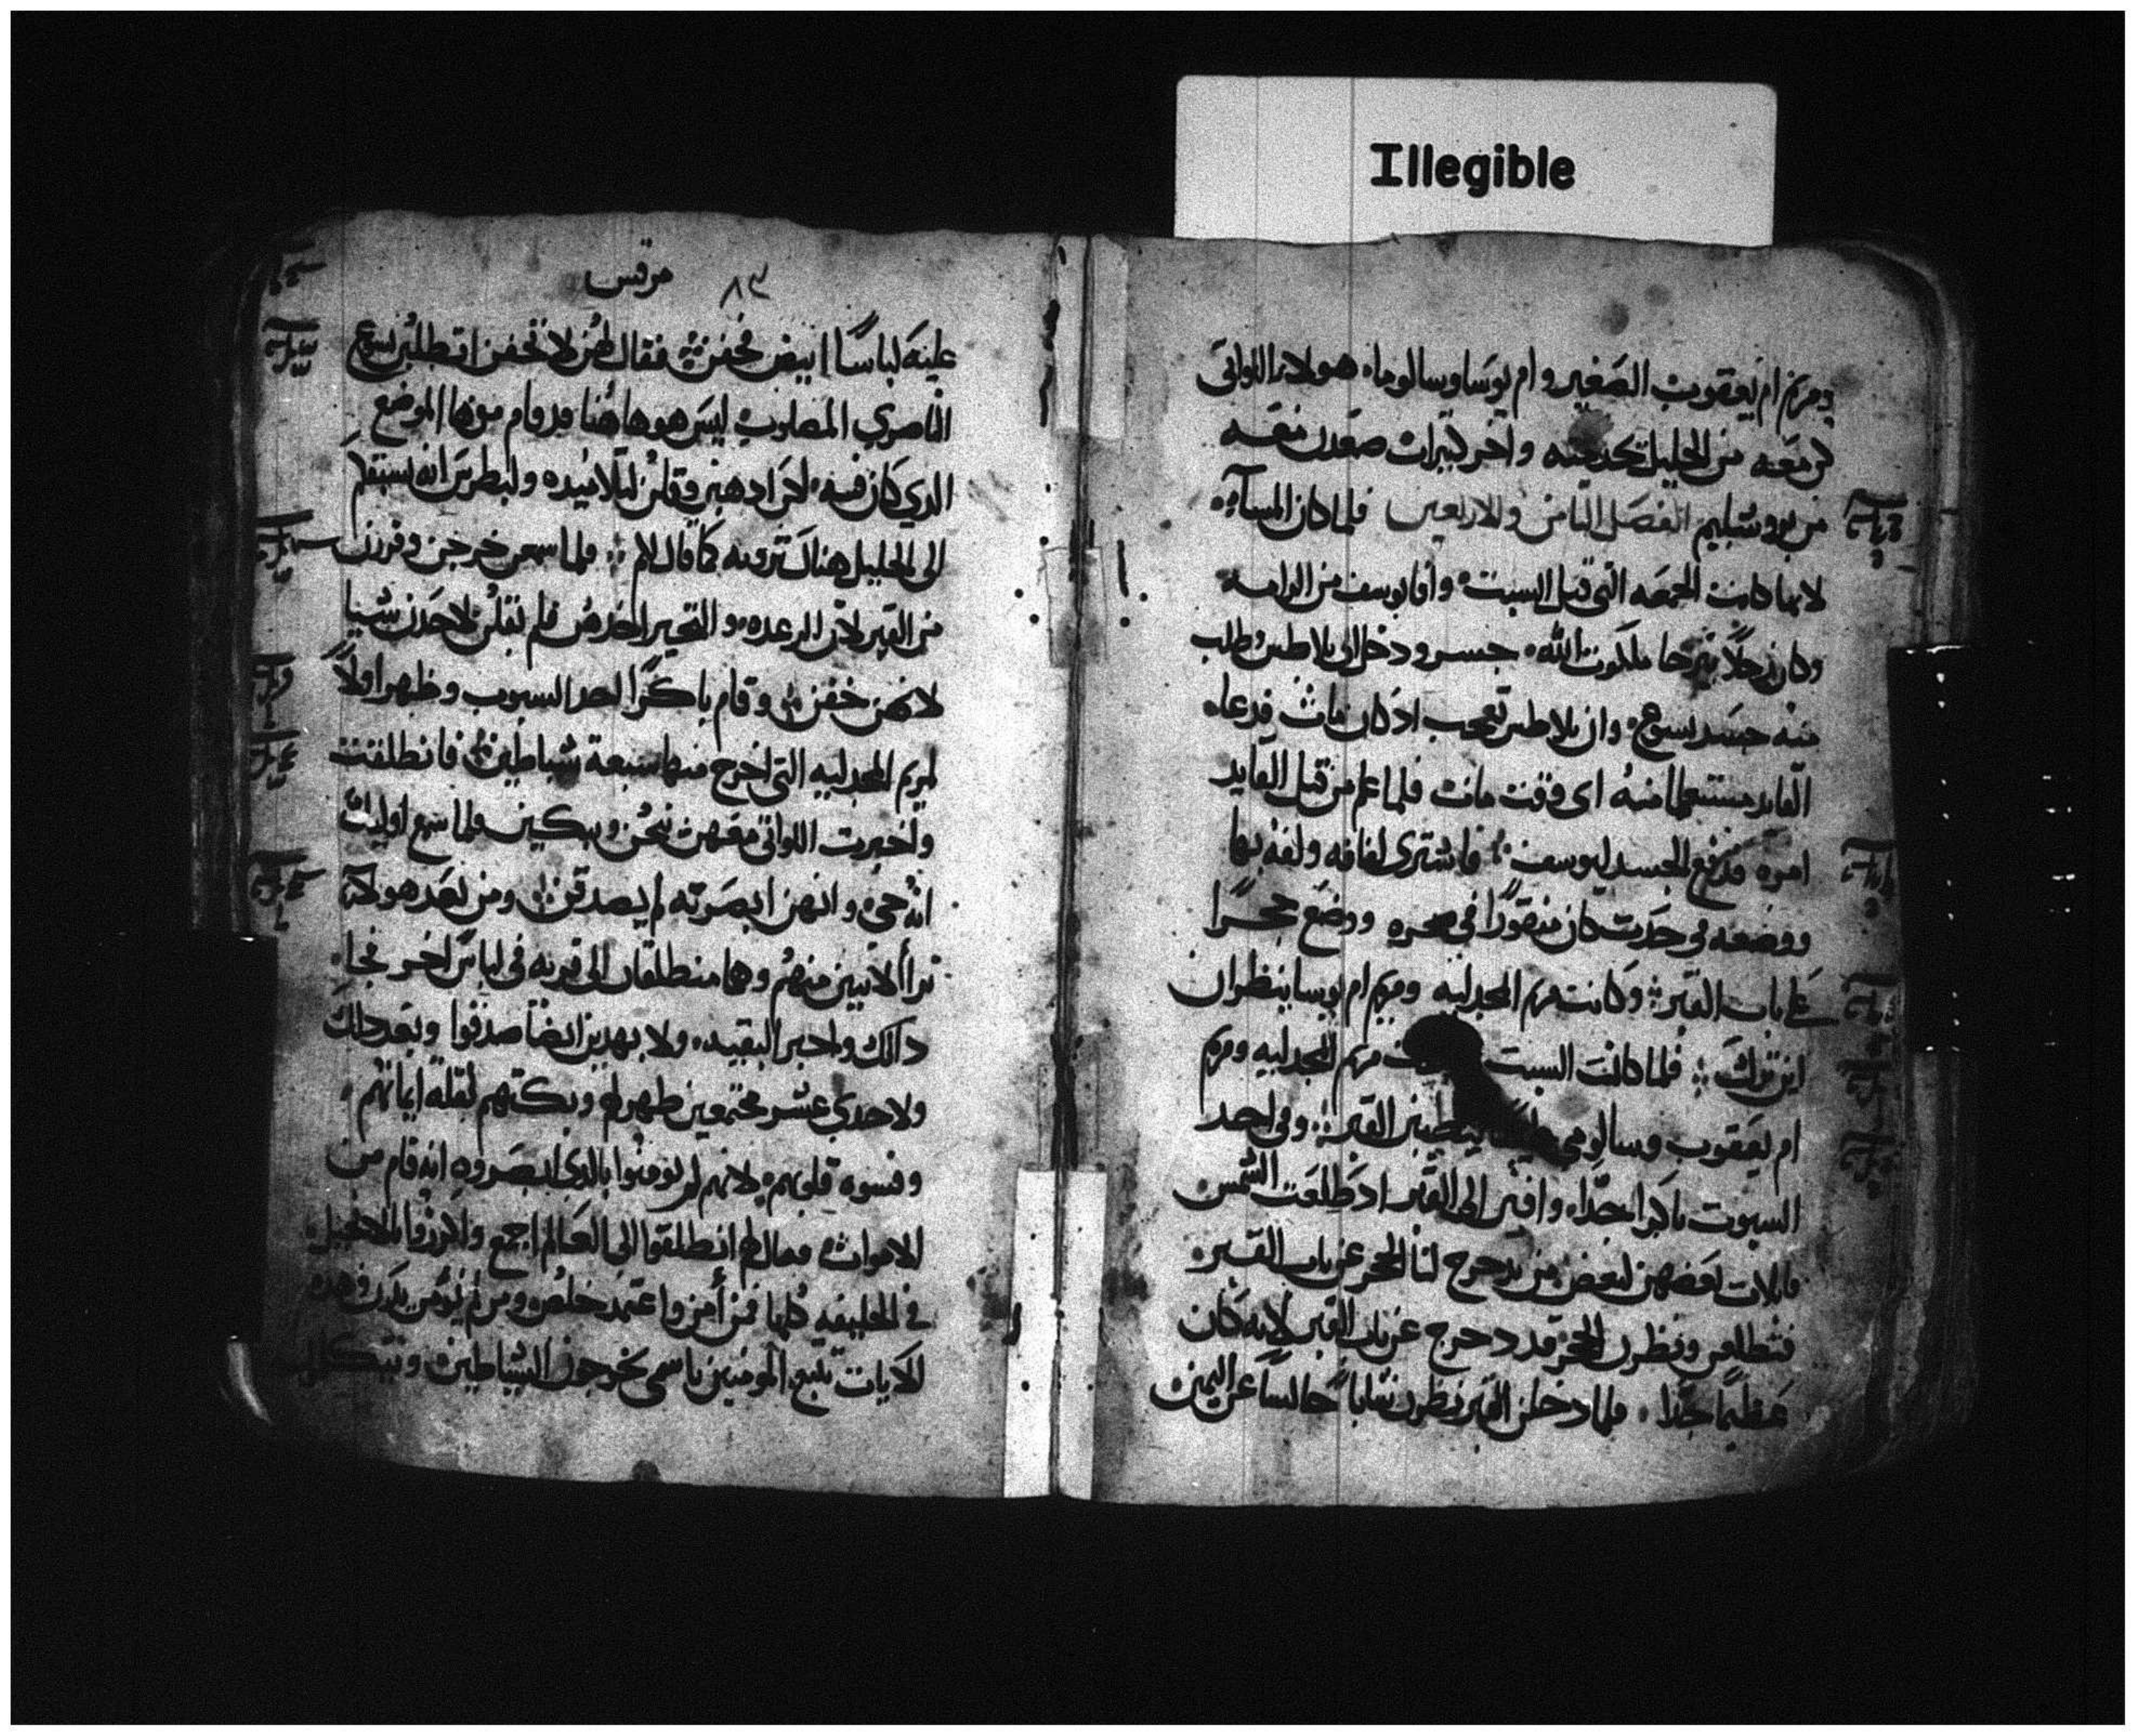 Illegible
ومريم ام يعقوب الصغير وام يوسا وسالوما، هولاء اللواتى
كن معه من الجليل تخدمنه واخر كثيرات صعدن معه
من يروشليم الفصل الثامن والاربعين فلما كان المساء،
لانها كانت الجمعه التى قبل السبت وافا يوسف من الرامه
وكان رجلا يترجا ملكوت الله، جسر ودخل الى بلاطس وطلب
منه جسد يسوع، وان بلاطس تعجب اد كان مات فدعاه
القايد مستعلما منه اى وقت مات فلما علم من قبل القايد
امره فدفع الجسد ليوسف فاشترى لفافه ولفه بها
ووضعه فى جدث كان منقورا فى صخره ووضع حجرا
على باب القبر وكانت مريم المجدليه ومريم ام يوسا ينظران
اين ترك فلما كانت السبت مريم المجدليه ومريم
ام يعقوب وسالومى ليطيبن القبر وفى احد
السبوت باكرا جدا، وافين الى القبر اد طلعت الشمس
قايلات بعضهن لبعض من يدحرج لنا الحجر عن باب القبر،
فتطلعن ونظرن الحجر قد دحرج عن باب القبر لانه كان
عظيما جدا، فلما دخلن القبر نظرن شابا جالسا عن اليمين
٨٣ مرقس
عليه لباسا ابيض فخفن فقال لهن لا تخفن اتطلبن يسوع
الناصري المصلوب ليس هو هاهنا قد قام هوذا الموضع
الدي كان فيه، لكن ادهبن وقلن لتلاميده ولبطرس انه يسبقكم
الى الجليل هناك ترونه كما قال لكم فلما سمعن خرجن وفررن
من القبر لان الرعده والتحير اخدهن فلم يقلن لاحد شيا
لانهن خفن وقام باكرا احد السبوت وظهر اولا
لمريم المجدليه التى اخرج منها سبعة شياطين فانطلقت
واخبرت اللواتى معهن ينحن ويبكين فلما سمع اوليك
انه حى وانهن ابصرنه لم يصدقن ومن بعد هولاء
ترا لاتنين منهم وهما منطلقان الى قريه فى لباس اخر فجاء
داك واخبر البقيه، ولا بهدين ايضا صدقوا وبعد دلك
ولاحدي عشر مجتمعين ظهر لهم وبكتهم لقلة ايمانهم،
وقسوه قلبهم، لانهم لم يومنوا بالدي ابصروه انه قام من
الاموات فقال لهم انطلقوا الى العالم اجمع واكرزوا بالانجيل
فى الخليقه كلها فمن أمن واعتمد خلص ومن لم يومن يدن وهده
الايات تتبع المومنين باسمى يخرجون الشياطين